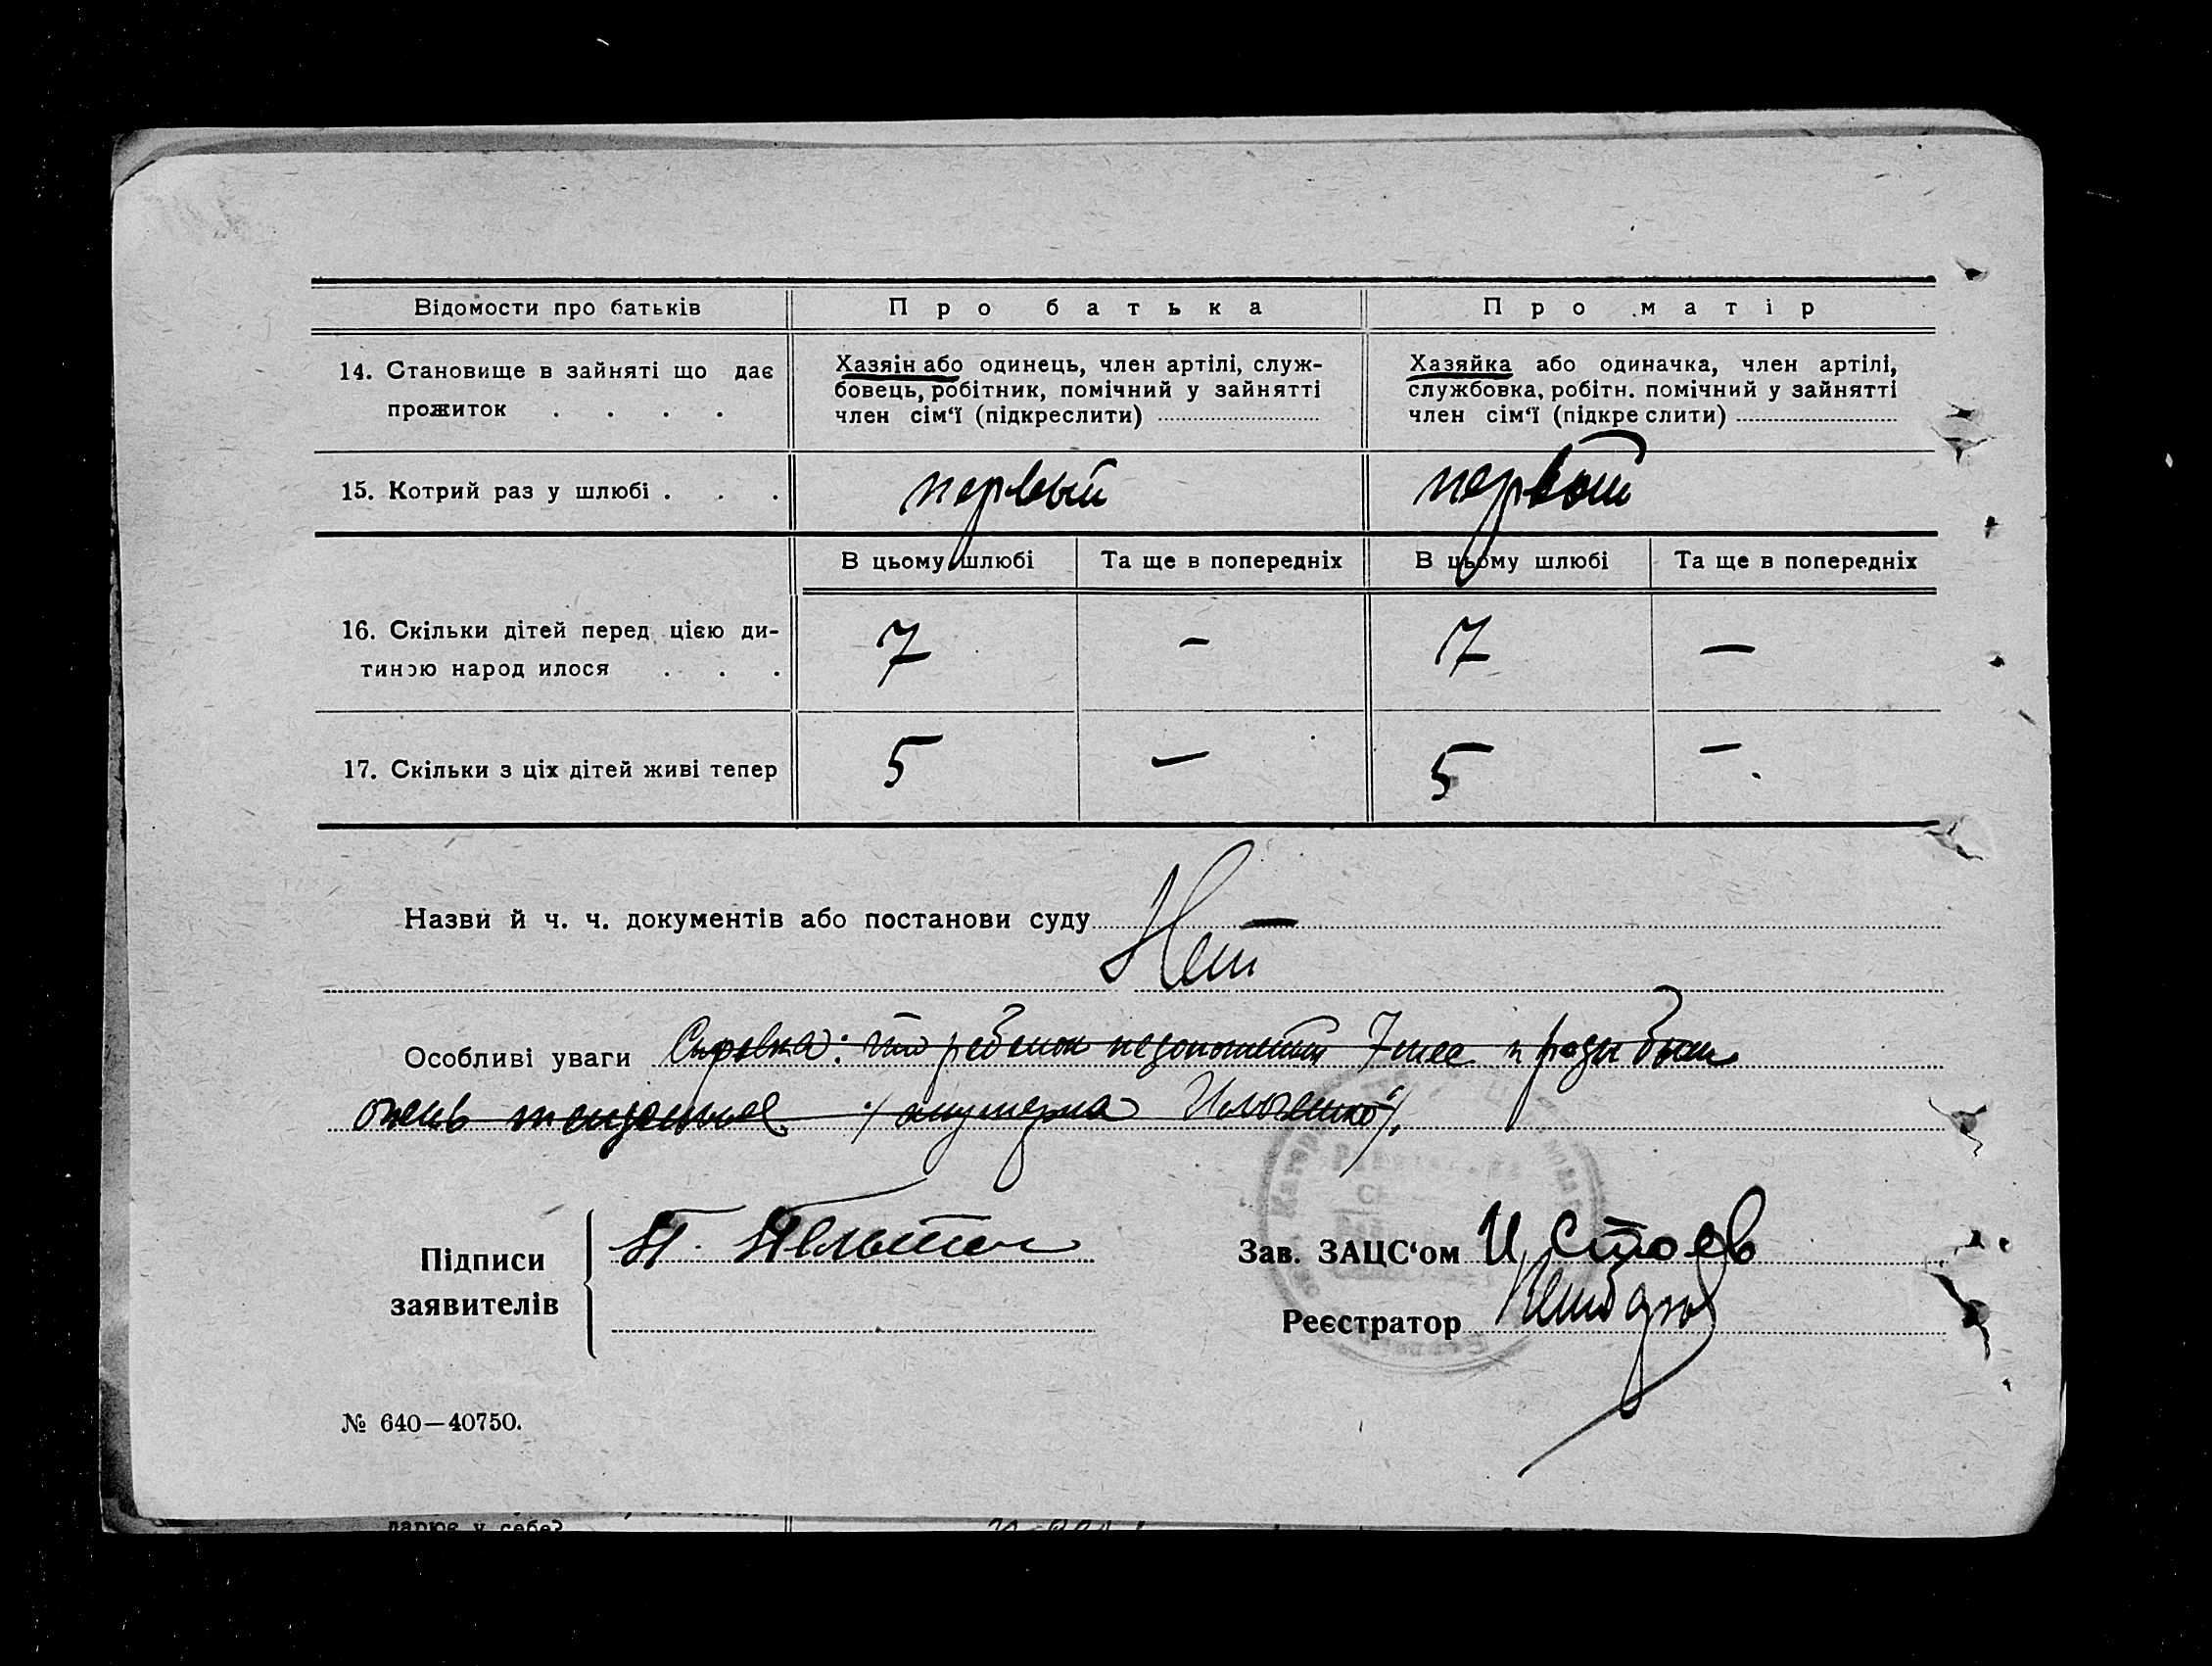 Відомости про батьків
Про батька
Про матір
14. Становище в зайняті що дає
прожиток . . . .
Хазяін або одинець, член артілі, служ-
бовець, робітник, помічний у зайнятті
член сім‘ї (підкреслити)
Хазяйка або одиначка, член артілі,
службовка, робітн. помічний у зайнятті
член сім‘ї (підкре слити)
15. Котрий раз у шлюбі . . .
первый
первый
В цьому шлюбі
Та ще в попередніх
В цьому шлюбі
Та ще в попередніх
16. Скільки дітей перед цією ди-
тиною народ илося . . .
7
—
7
—
17. Скільки з ціх дітей живі тепер
5
—
5
—
Назви й ч. ч. документів або постанови суду
Нет
Особливі уваги Справка: что ребенок недоношенный 7 мес и роды были
очень / акушерка
Підписи
заявителів
Зав. ЗАЦС‘ом И. Стоев
Реєстратор
№ 640—40750.
дарює у себе?